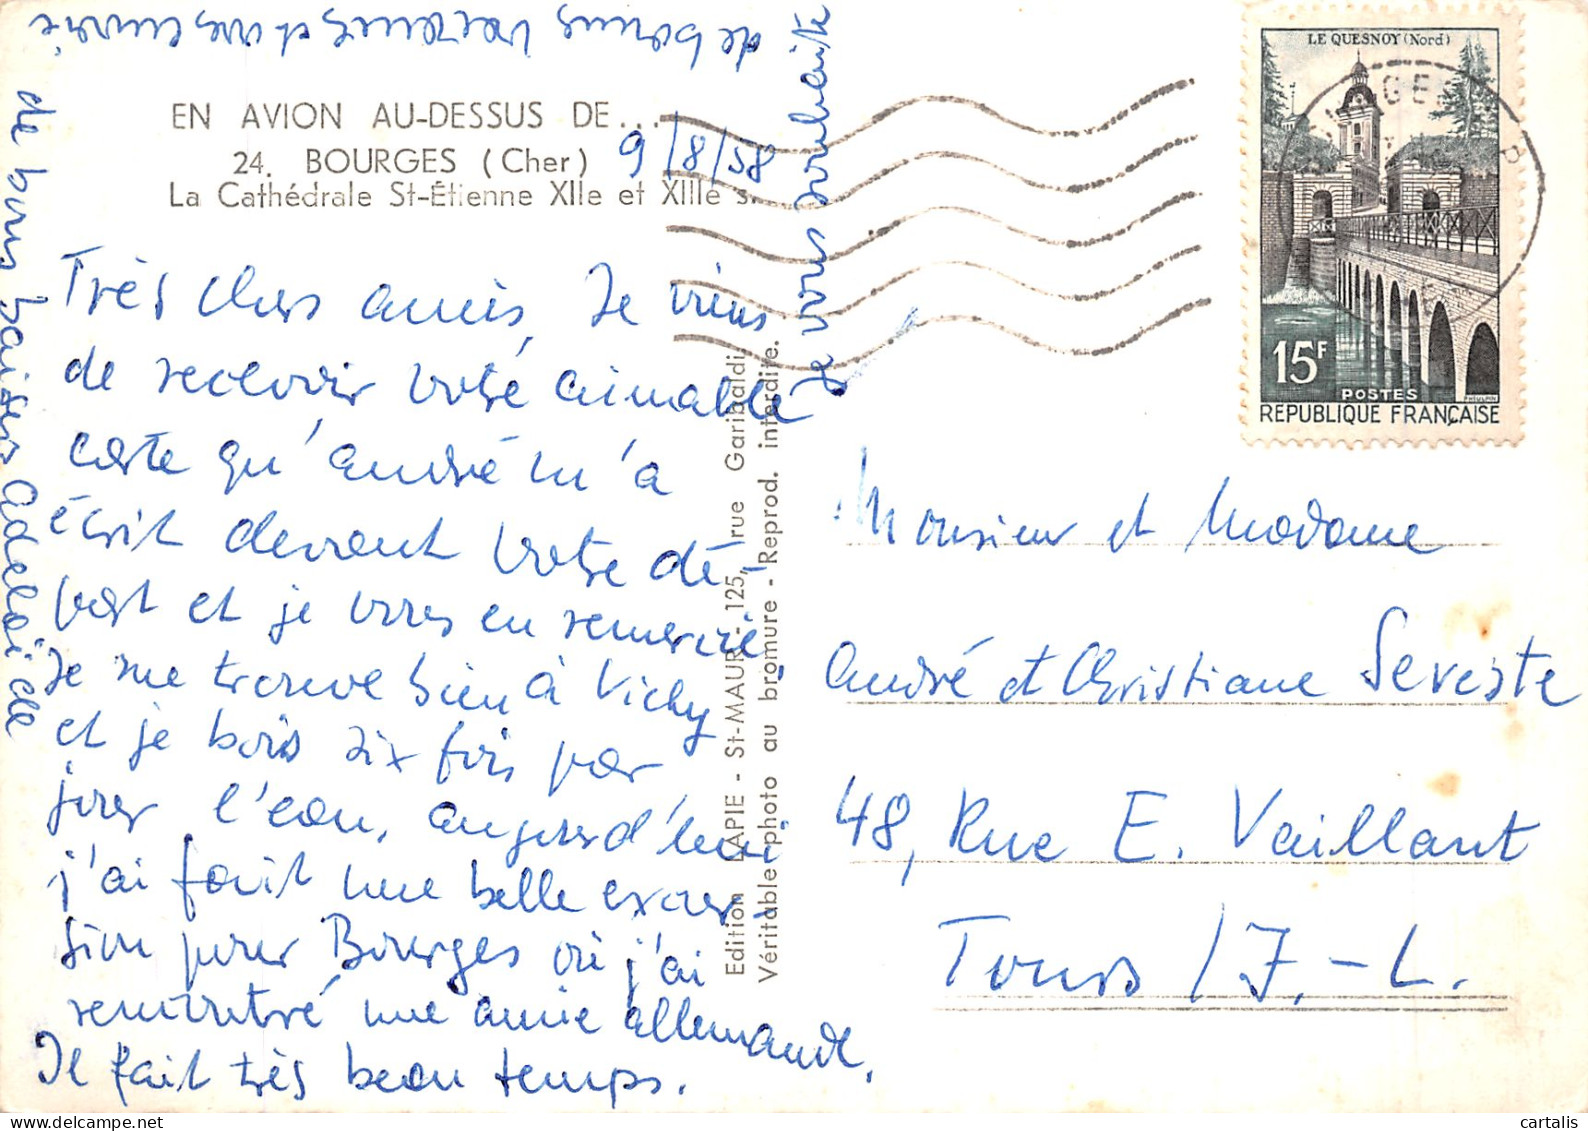 EN AVION AU-DESSUS DE...
24. BOURGES (Cher)
La Cathédrale St-Étienne XIIe et XIIIe s.
9/8/58
Très chers amis, Je viens
de recevoir votre aimable
carte qu'André m'a
écrit devant votre dé-
part et je vous en remercie.
Je me trouve bien à Vichy
et je bois six fois par
jour l'eau. Aujourd'hui
j'ai fait une belle excur-
sion pour Bourges où j'ai
rencontré une amie allemande.
Il fait très beau temps.
Je vous souhaite
de bonnes vacances et vous envoie
de bons baisers Adelaïde
Edition LAPIE - St-MAUR - 125, rue Garibaldi
Véritable photo au bromure - Reprod. interdite.
LE QUESNOY (Nord)
15F
POSTES
REPUBLIQUE FRANÇAISE
Monsieur et Madame
André et Christiane Seveste
48, Rue E. Vaillant
Tours / I.-L.
cartalis